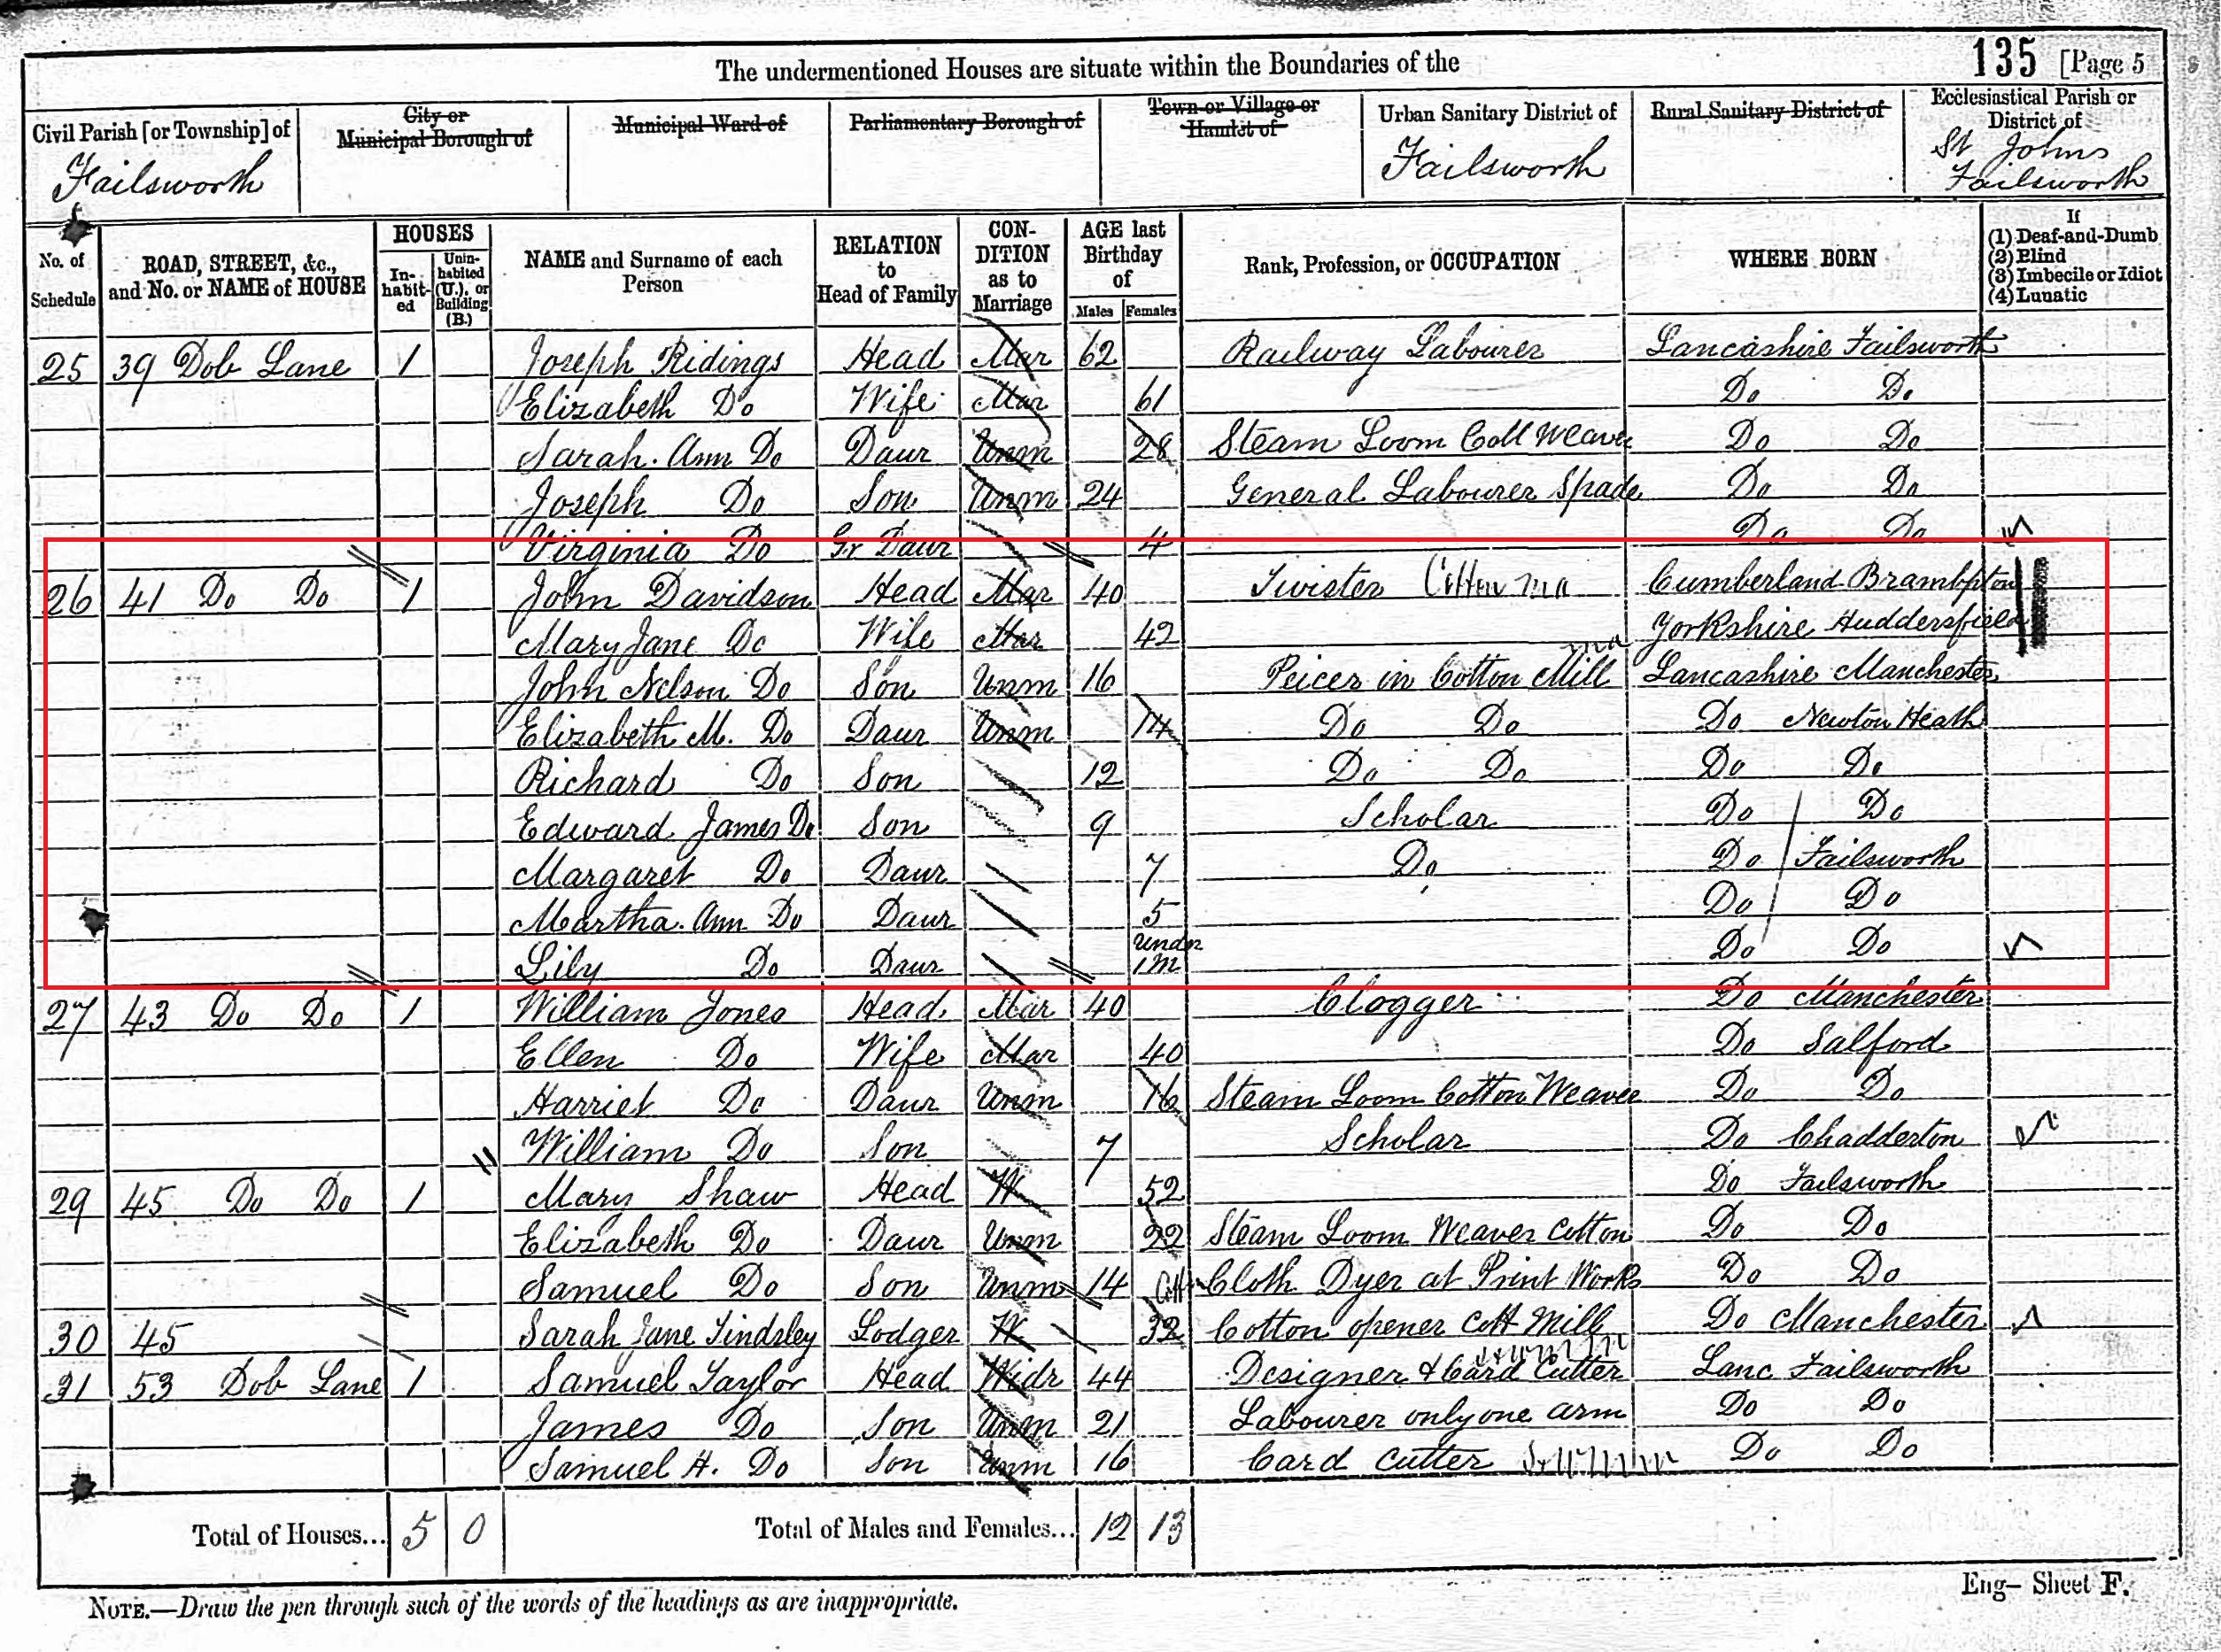 The undermentioned Houses are situate within the Boundaries of the
135 [Page 5
Civil Parish [or Township] of
Failsworth
City or
Municipal Borough of
Municipal Ward of
Parliamentary Borough of
Town or Village or
Hamlet of
Urban Sanitary District of
Failsworth
Rural Sanitary District of
Ecclesiastical Parish or
District of
St Johns
Failsworth
No. of
Schedule
ROAD, STREET, &c.,
and No. or NAME of HOUSE
HOUSES
In-
habit-
ed
Unin-
habited
(U.), or
Building
(B.)
NAME and Surname of each
Person
RELATION
to
Head of Family
CON-
DITION
as to
Marriage
AGE last
Birthday
of
Males Females
Rank, Profession, or OCCUPATION
WHERE BORN
If
(1) Deaf-and-Dumb
(2) Blind
(3) Imbecile or Idiot
(4) Lunatic
25 39 Dob Lane 1 Joseph Ridings Head Mar 62 Railway Labourer Lancashire Failsworth
Elizabeth Do Wife Mar 61 Do Do
Sarah. Ann Do Daur Unm 28 Steam Loom Cott Weaver Do Do
Joseph Do Son Unm 24 General Labourer Spade Do Do
Virginia Do Gr Daur 4 Do Do
26 41 Do Do 1 John Davidson Head Mar 40 Twister Cotton ma Cumberland Brambpton
Mary Jane Do Wife Mar 42 Yorkshire Huddersfield
John Nelson Do Son Unm 16 Peicer in Cotton Mill ma Lancashire Manchester
Elizabeth M. Do Daur Unm 14 Do Do Do Newton Heath
Richard Do Son 12 Do Do Do Do
Edward James Do Son 9 Scholar Do Do
Margaret Do Daur 7 Do Do Failsworth
Martha. Ann Do Daur 5 Do Do
Lily Do Daur under 1 m Do Do
27 43 Do Do 1 William Jones Head Mar 40 Clogger Do Manchester
Ellen Do Wife Mar 40 Do Salford
Harriet Do Daur Unm 16 Steam Loom Cotton Weaver Do Do
William Do Son 7 Scholar Do Chadderton
29 45 Do Do 1 Mary Shaw Head W 52 Do Failsworth
Elizabeth Do Daur Unm 22 Steam Loom Weaver Cotton Do Do
Samuel Do Son Unm 14 Cloth Dyer at Print Works Do Do
30 45 Sarah Jane Tindsley Lodger W 32 Cotton opener Cott Mill Do Manchester
31 53 Dob Lane 1 Samuel Taylor Head Widr 44 Designer & Card Cutter Lanc Failsworth
James Do Son Unm 21 Labourer only one arm Do Do
Samuel H. Do Son Unm 16 Card Cutter Do Do
Total of Houses... 5 0 Total of Males and Females... 12 13
NOTE.—Draw the pen through such of the words of the headings as are inappropriate.
Eng– Sheet F.